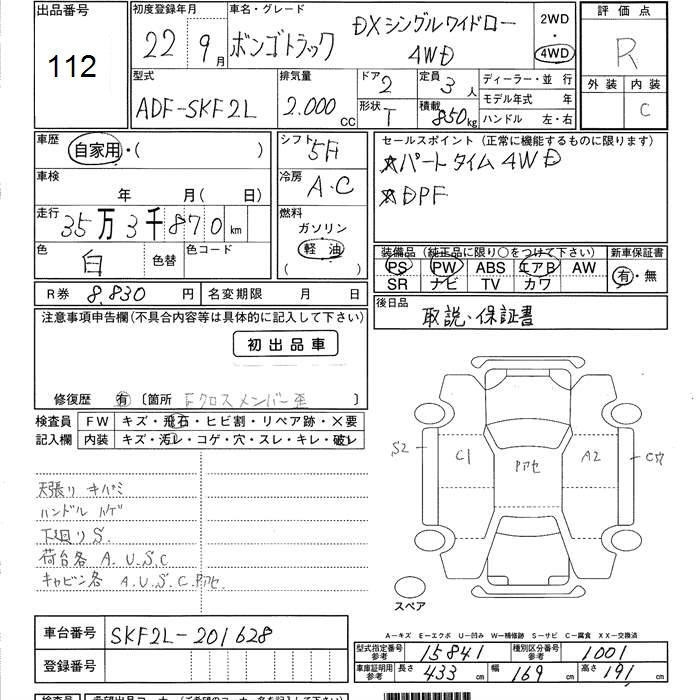 出品番号
112
初度登録年月
22 9月
車名・グレード
ボンゴトラック DXシングルワイドロー
4WD
2WD
・
4WD
評価点
R
外装 内装
C
型式
ADF-SKF2L
排気量
2.000
CC
ドア 2
形状 T
定員 3 人
積載 850kg
ディーラー・並 行
モデル年式 年
ハンドル 左・右
車歴
自家用・( )
車検
年 月( 日)
走行
35万3千870km
色
白
色替
色コード
シフト
5F
冷房
A.C
燃料
ガソリン
軽油
( )
セールスポイント(正常に機能するものに限ります)
☆パートタイム4WD
☆DPF
装備品(純正品に限り○をつけて下さい)
PS PW ABS エアB AW
SR ナビ TV カワ
新車保証書
有・無
R券 8.830 円
名変期限 月 日
後日品
取説・保証書
注意事項申告欄(不具合内容等は具体的に記入して下さい)
初出品車
修復歴 有 〔箇所 Fクロスメンバー歪 〕
検査員
記入欄
FW キズ・飛石・ヒビ割・リペア跡・×要
内装 キズ・汚レ・コゲ・穴・スレ・キレ・破レ
天張り キバミ
ハンドル ハゲ
下廻りS.
荷台各 A.U.S.C
キャビン各 A.U.S.C.アセ.
S2
C1
アセ
A2
C穴
スペア
車台番号
SKF2L-201628
登録番号
A－キズ E－エクボ U－凹み W－補修跡 S－サビ C－腐食 XX－交換済
型式指定番号
参考
15841
種別区分番号
参考
1001
車庫証明用
参考
長さ 433 cm
幅 169 cm
高さ 191 cm